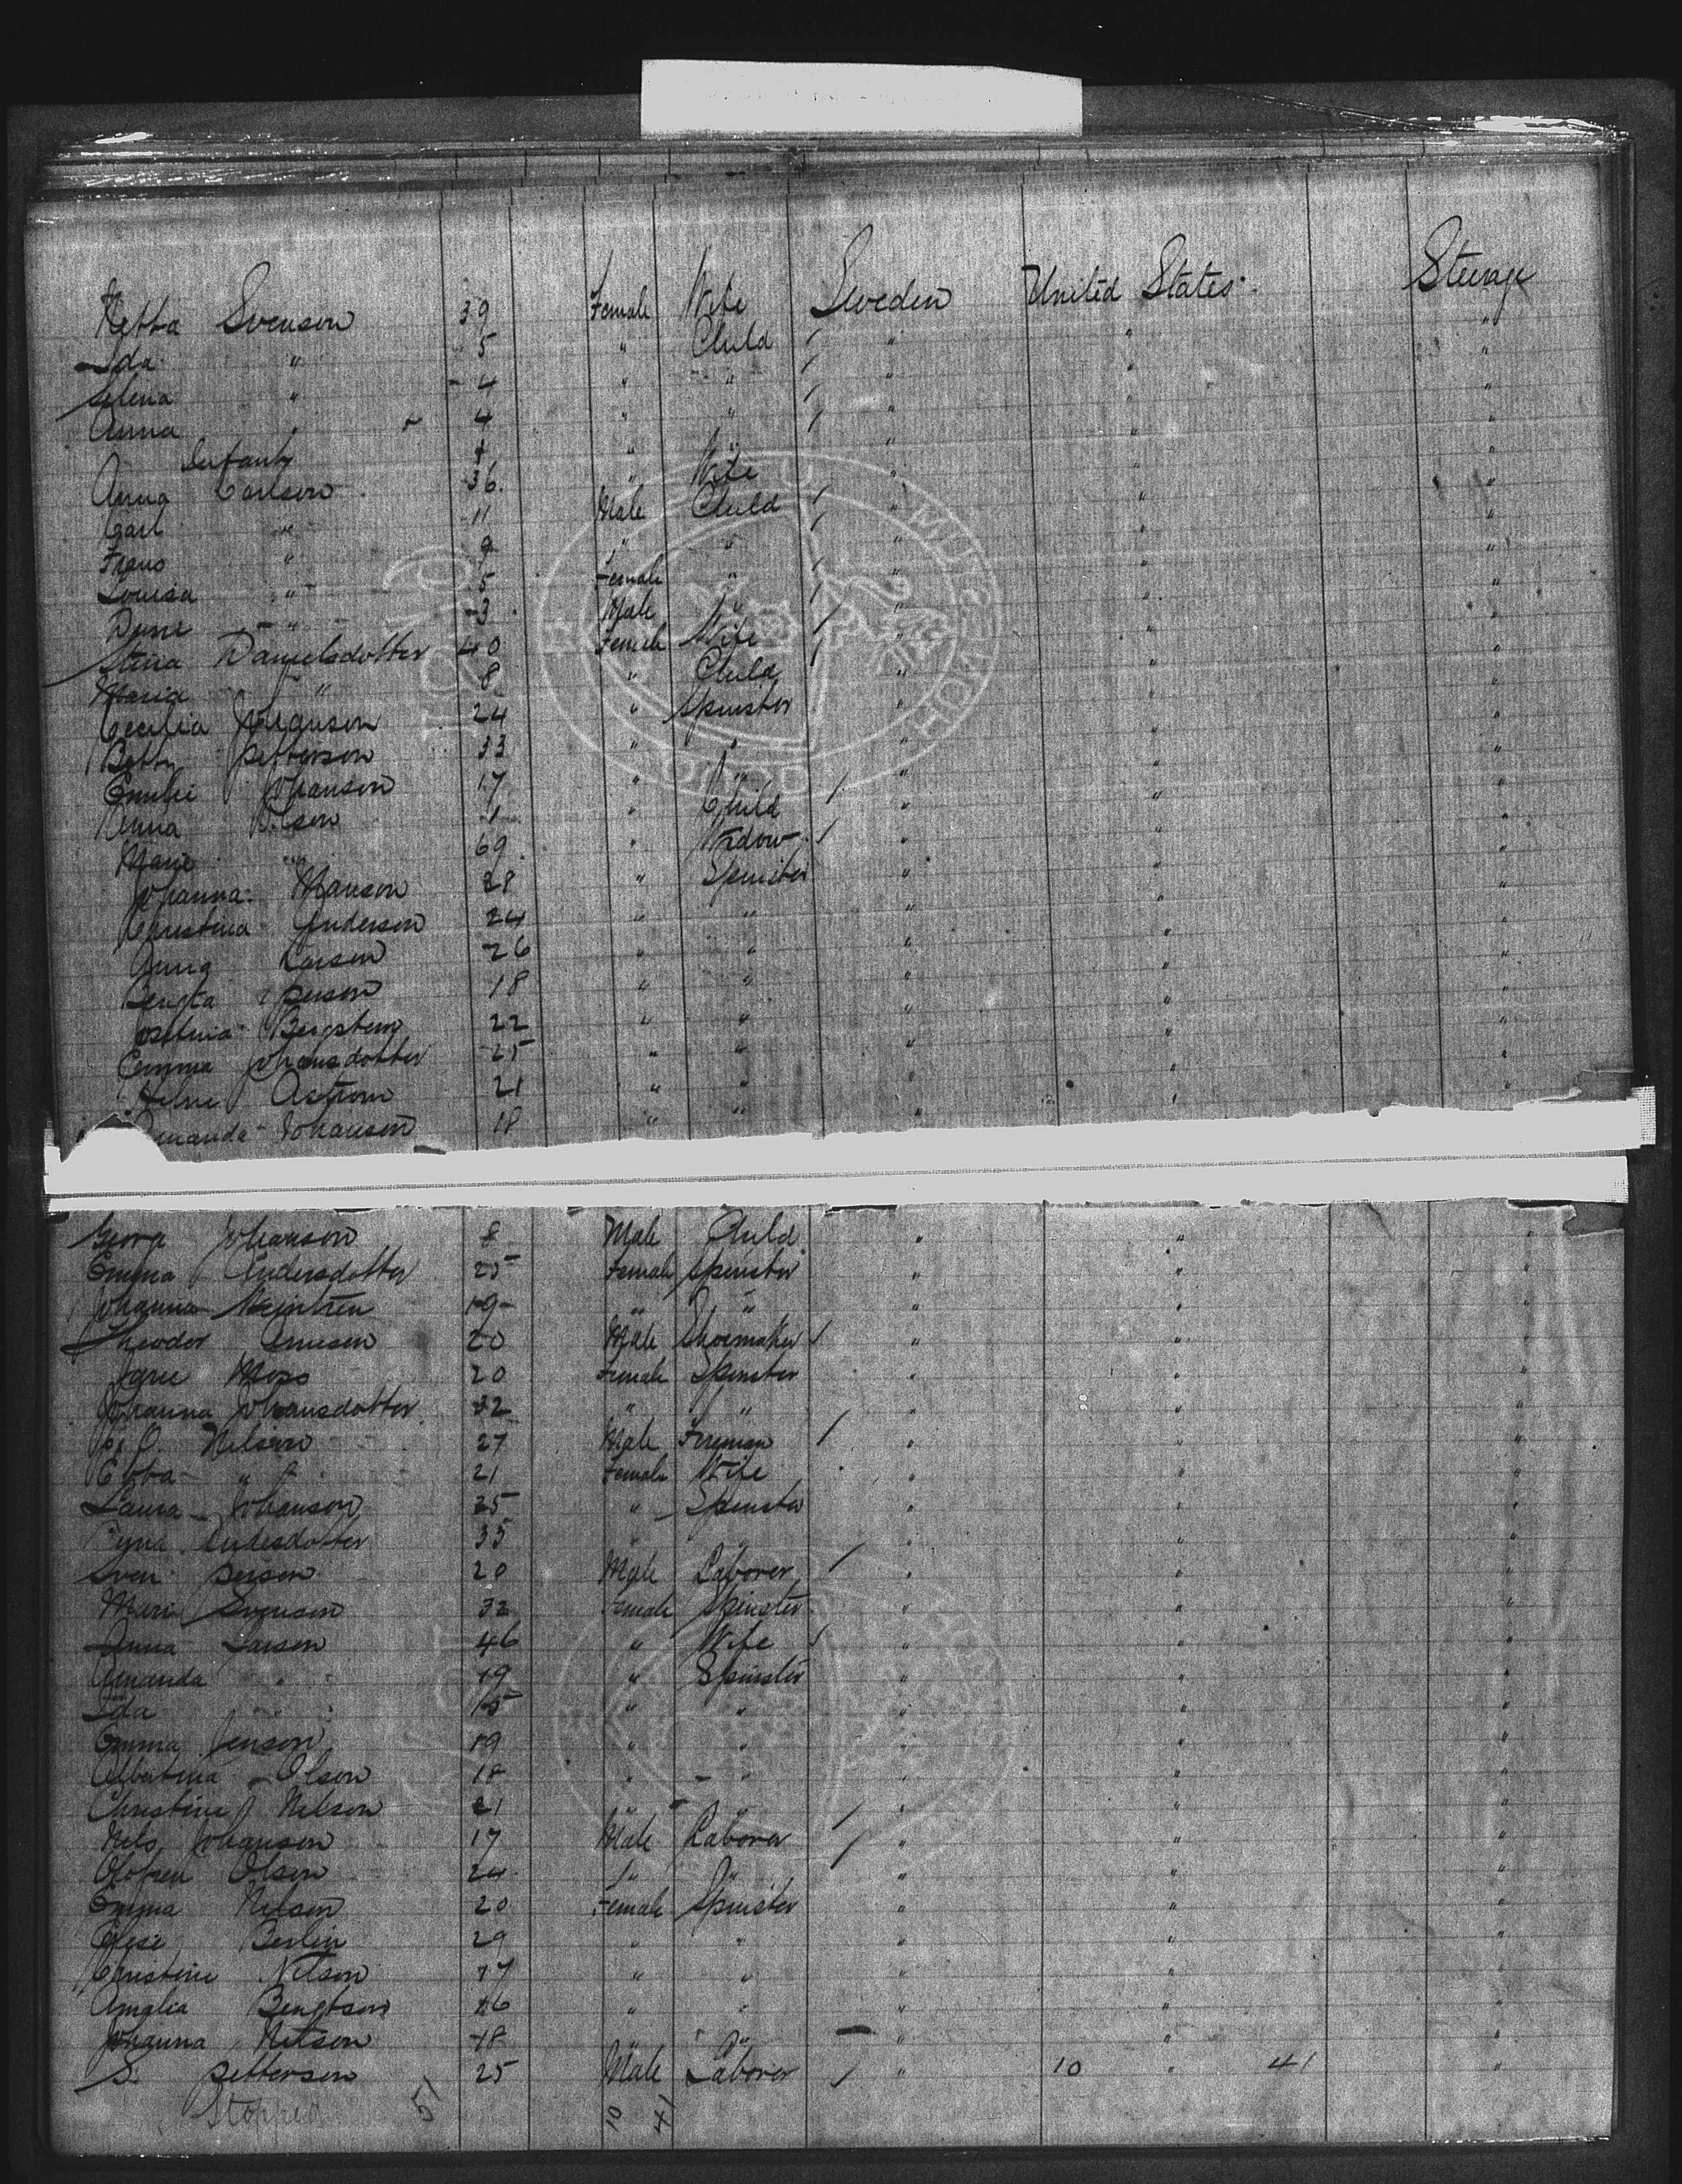 Netta Svenson 39 Female Wife Sweden United States Steerage
Ida " 5 " Child / " " "
Selena " 4 " " / " " "
Anna " 4 " " / " " "
Infant " " " "
Anna Carlson 36 " Wife " " "
Carl " 11 Male Child / " " "
Frans " 9 " " / " " "
Louisa " 5 Female " / " " "
" 3 Male " / " " "
Stina Danielsdotter 40 Female Wife / " " "
Maria " 8 " Child / " " "
Cecilia Johanson 24 " Spinster " " "
Betty Petterson 33 " " " " "
Emelie Johanson 17 " " " " "
Anna Olson 1 " Child / " " "
Marie " 69 " Widow / " " "
Johanna Manson 28 " Spinster " " "
Christina Anderson 24 " " " " "
Anna Larson 26 " " " " "
Bengta Person 18 " " " " "
Josefina Bergstrom 22 " " " " "
Emma Johansdotter 25 " " " " "
Astrom 21 " " " " "
Amanda Johanson 18 " " "
Georg Johanson 8 Male Child " " "
Emma Andersdotter 25 Female Spinster " " "
Johanna 19 " " " " "
Theodor 20 Male Shoemaker / " " "
Moss 20 Female Spinster " " "
Johanna Johansdotter 32 " " " " "
O. Nilson 27 Male Fireman / " " "
Ebba " 21 Female Wife " " "
Laura Johanson 25 " Spinster " " "
Andersdotter 35 " " " " "
Sven Person 20 Male Laborer / " " "
Mari Svenson 32 Female Spinster " " "
Anna Larson 46 " Wife / " " "
Amanda " 19 " Spinster " " "
Ida " 15 " " " " "
Emma Jenson 19 " " " " "
Albertina Olson 18 " " " " "
Christine Nelson 21 " " " " "
Nels Johanson 17 Male Laborer / " " "
Olofren Olson 24 " " / " " "
Emma Nelson 20 Female Spinster " " "
Berlin 29 " " " " "
Christine Nilson 17 " " " " "
Amalia Bengtson 16 " " " " "
Johanna Nilson 18 " " " " "
S. Petterson 25 Male Laborer / " 10 " 41 "
Stopped 51 10 41